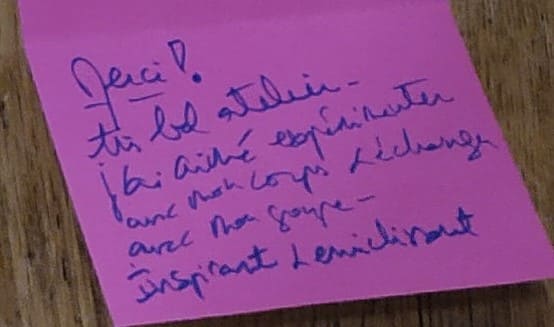 Merci !
très bel atelier -
j'ai aimé expérimenter
avec mon corps & échanger
avec mon groupe -
inspirant & enrichissant